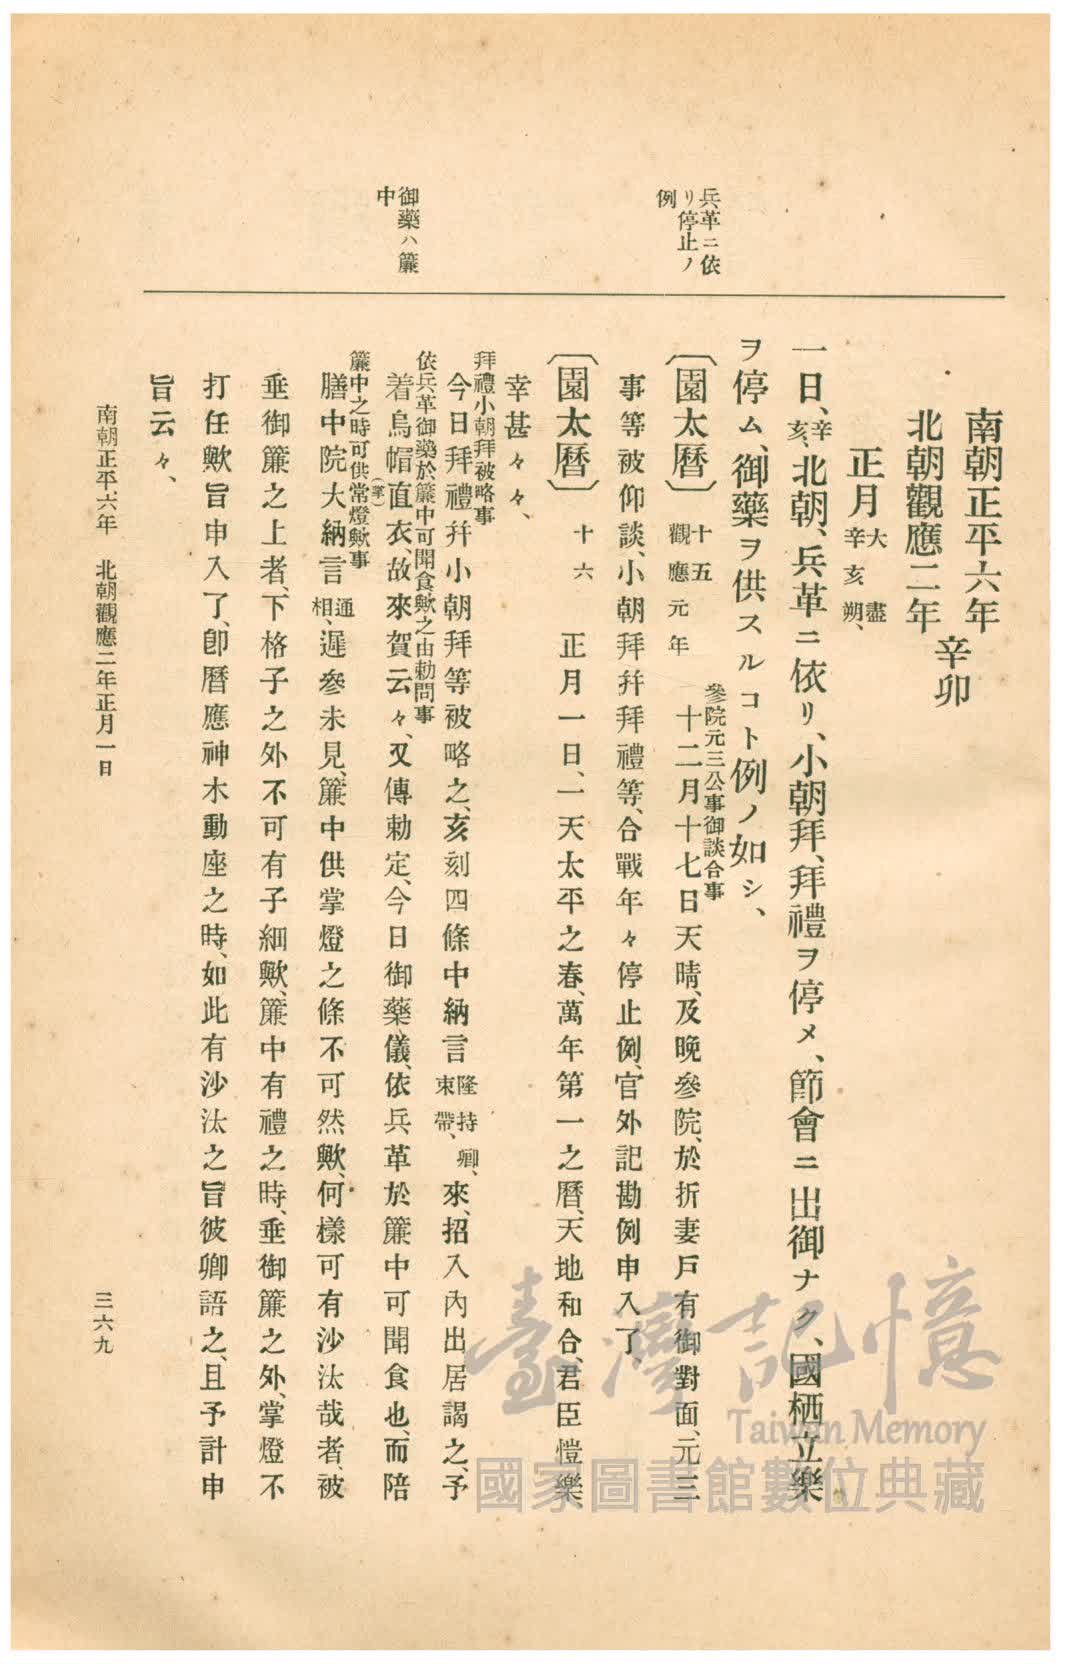 兵革ニ依
リ停止ノ
例
御藥ハ簾
中
南朝正平六年
北朝觀應二年
辛卯
正月大盡
辛亥朔、
一日、辛亥、北朝、兵革ニ依リ、小朝拜、拜禮ヲ停メ、節會ニ出御ナク、國栖立樂
ヲ停ム、御藥ヲ供スルコト例ノ如シ、
〔園太曆〕十五觀應元年十二月十七日天晴、及晚參院、於折妻戶有御對面、元三
參院元三公事御談合事
事等被仰談、小朝拜幷拜禮等、合戰年々停止例、官外記勘例申入了、
〔園太曆〕十六正月一日、一天太平之春、萬年第一之曆、天地和合、君臣愷樂、
幸甚々々、
拜禮小朝拜被略事
今日拜禮幷小朝拜等被略之、亥刻四條中納言隆持卿、束帶、來、招入內出居謁之、予
依兵革御藥於簾中可聞食歟之由勅問事
着烏帽直衣、故來賀云々、又傳勅定、今日御藥儀、依兵革於簾中可聞食也、而陪
簾中之時可供常(掌)燈歟事
膳中院大納言通相、遲參未見、簾中供掌燈之條不可然歟、何樣可有沙汰哉者、被
垂御簾之上者、下格子之外不可有子細歟、簾中有禮之時、垂御簾之外、掌燈不
打任歟旨申入了、卽曆應神木動座之時、如此有沙汰之旨彼卿語之、且予計申
旨云々、
南朝正平六年　北朝觀應二年正月一日
三六九
臺灣記憶
Taiwan Memory
國家圖書館數位典藏